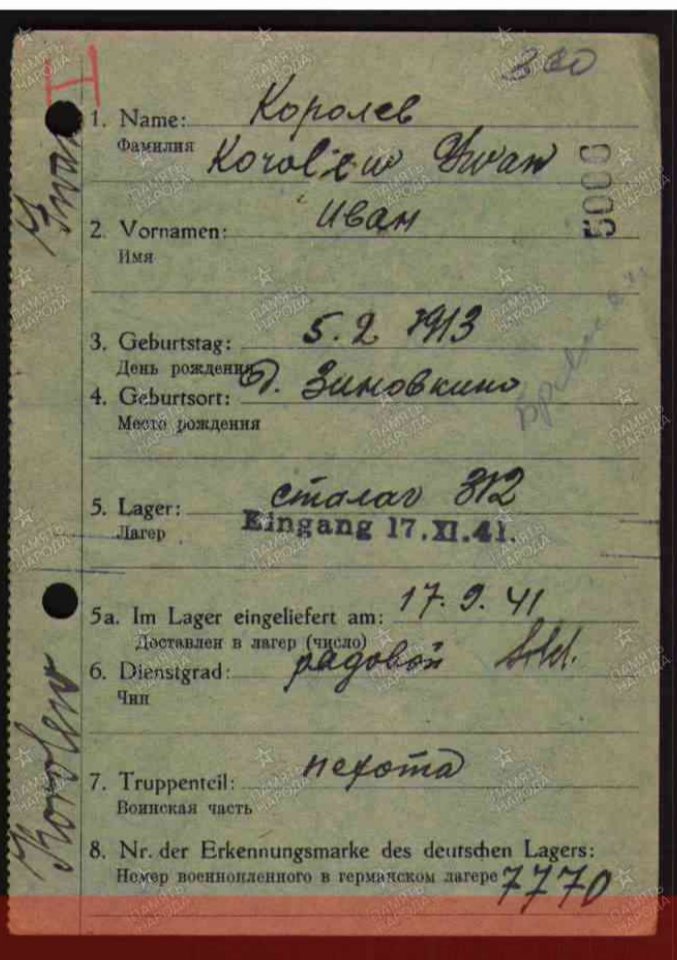 H
1. Name: Королев
Фамилия Koroljew Iwan
5000
2. Vornamen: Иван
Имя
3. Geburtstag: 5.2 1913
День рождения
4. Geburtsort: д. Зиновкино
Место рождения
5. Lager: сталаг 312
Лагер
Eingang 17.XI.41.
5a. Im Lager eingeliefert am: 17.9.41
Доставлен в лагер (число)
6. Dienstgrad: рядовой Sold.
Чин
7. Truppenteil: пехота
Воинская часть
8. Nr. der Erkennungsmarke des deutschen Lagers:
Номер военнопленного в германском лагере 7770
Korolew Iwan
ПАМЯТЬ НАРОДА